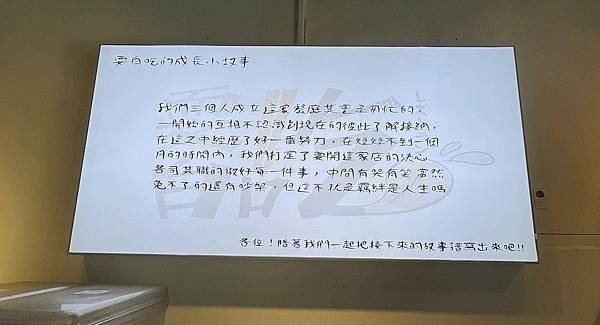 要自吃的成長小故事
我們三個人成立這家
一開始的互相不認識到現在的彼此了解接納,
在這之中經歷了好一番努力,在短短不到一個
月的時間內,我們打定了要開這家店的決心
各司其職的做好每一件事,中間有哭有笑當然
免不了的還有吵架,但這不就是羈絆是人生嗎
各位!陪著我們一起把接下來的故事譜寫出來吧!!